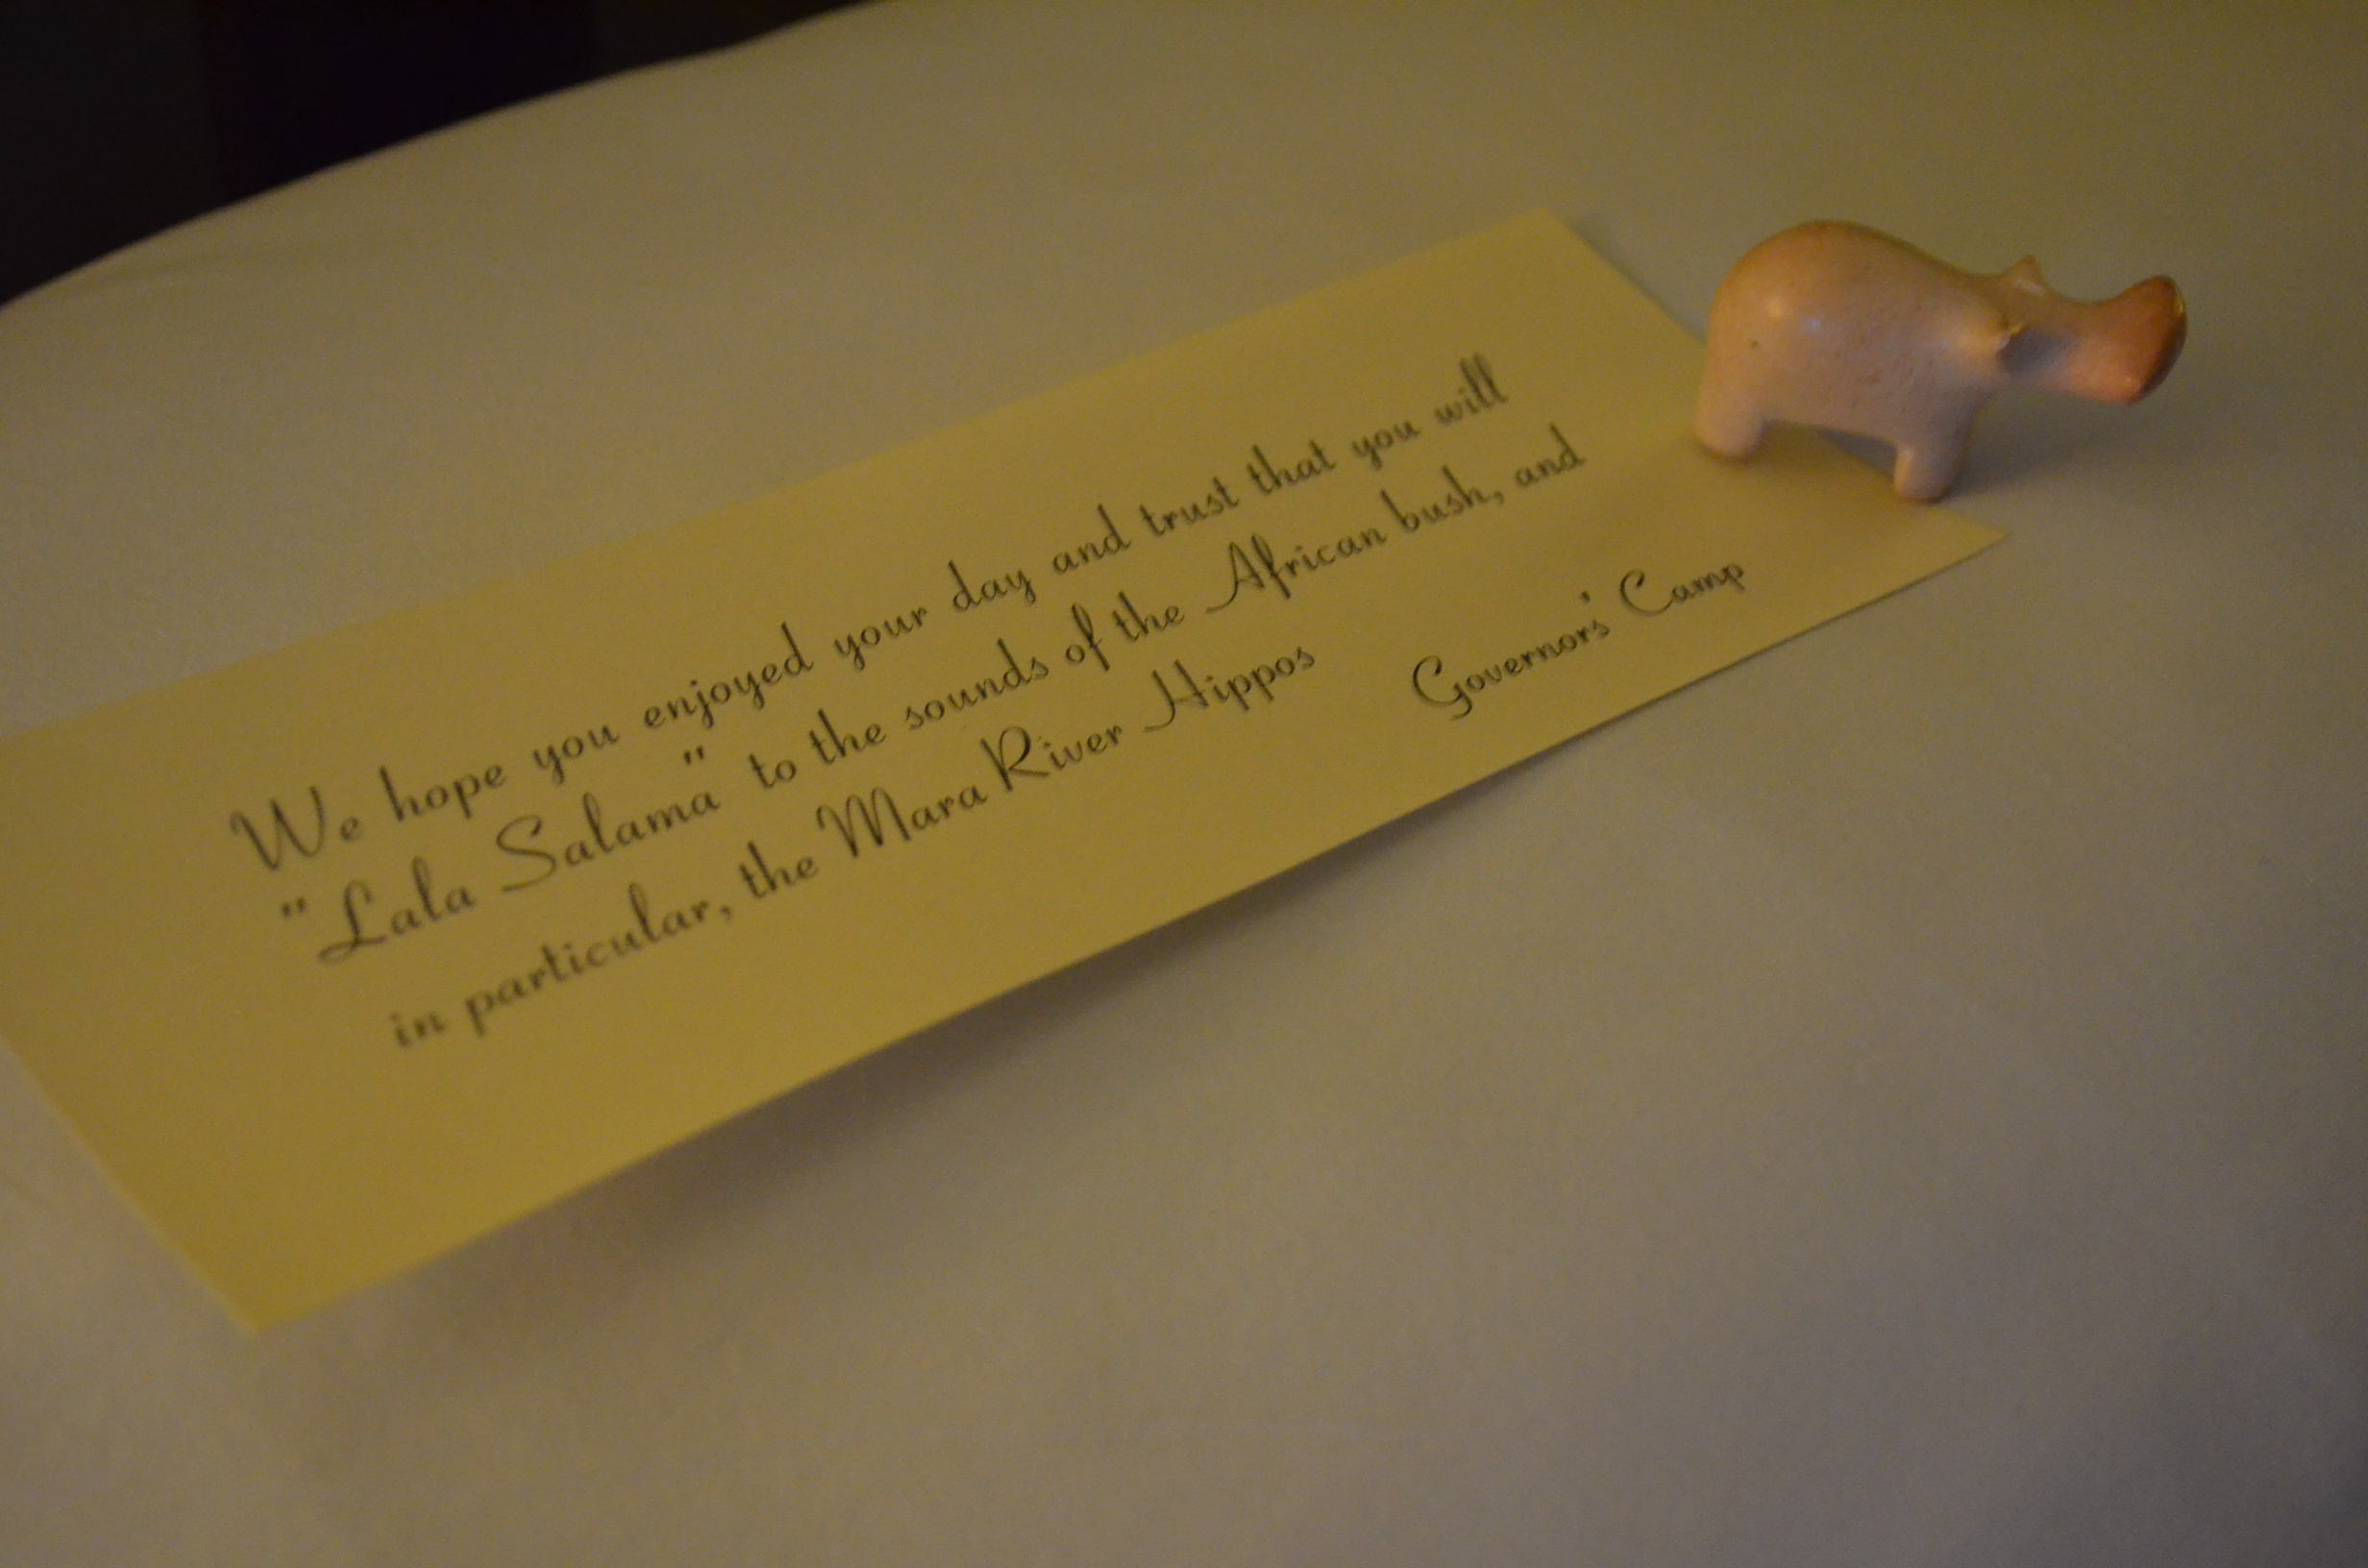 We hope you enjoyed your day and trust that you will
"Lala Salama" to the sounds of the African bush, and
in particular, the Mara River Hippos
Governors' Camp